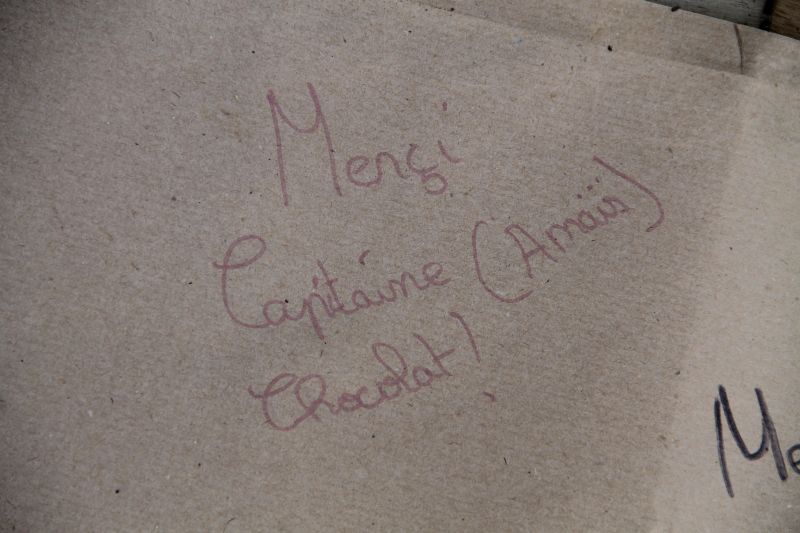 Merçi
Capitaine (Amaïa)
Chocolat!
Me